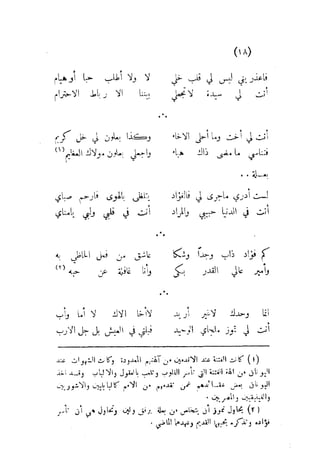 (١٨)
فاعذريني ليس لي قلب خلي لا ولا أطلب حبا أو هيام
أنت لي سيدة لا تجعلي بيننا الا رباط الاحترام
•°•
أنت لي أخت وما أحلى الاخاء وكذا بعلون لي خل كريم
فتناسي ما مضى ذاك هباء واجعلي بعلون مولاك العظيم (١)
بعـلة ..
لست أدري ماجرى لي فالفؤاد يتلظى بالهوى فارحم صباي
أنت في الدنيا حبيبي والمراد أنت في قلبي ولبي يامناي
•°•
كم فؤاد ذاب وجداً وشكا عاشق من فعل الحاظي به
وأمير عالي القدر بكى وأنا غافلة عن حبه (٢)
•°•
انما وحدك لاغير أريد لاأخا الاك لا أما وأب
أنت لي تموز ملجاي الوحيد فبلتي في العيش بل جل الارب
(١) كانت الفتنة عند الاقدمين من آلهتهم المعدودة وكانت الشهوات عند
اليونان من آلهة الفتنة التي تأسر القلوب وتلعب بالعقول والالباب وقد اخذ
اليونان بعض عقائدهم عمن تقدمهم من الامم كالبابليين والاشوريين
والفينيقيين والمصريين.
(٢) يحاول تموز أن يتخلص من بعلة برفق ولين وتحاول هي أن تأسر
فؤاده وتذكره بحبها القديم وعهدها الماضي.